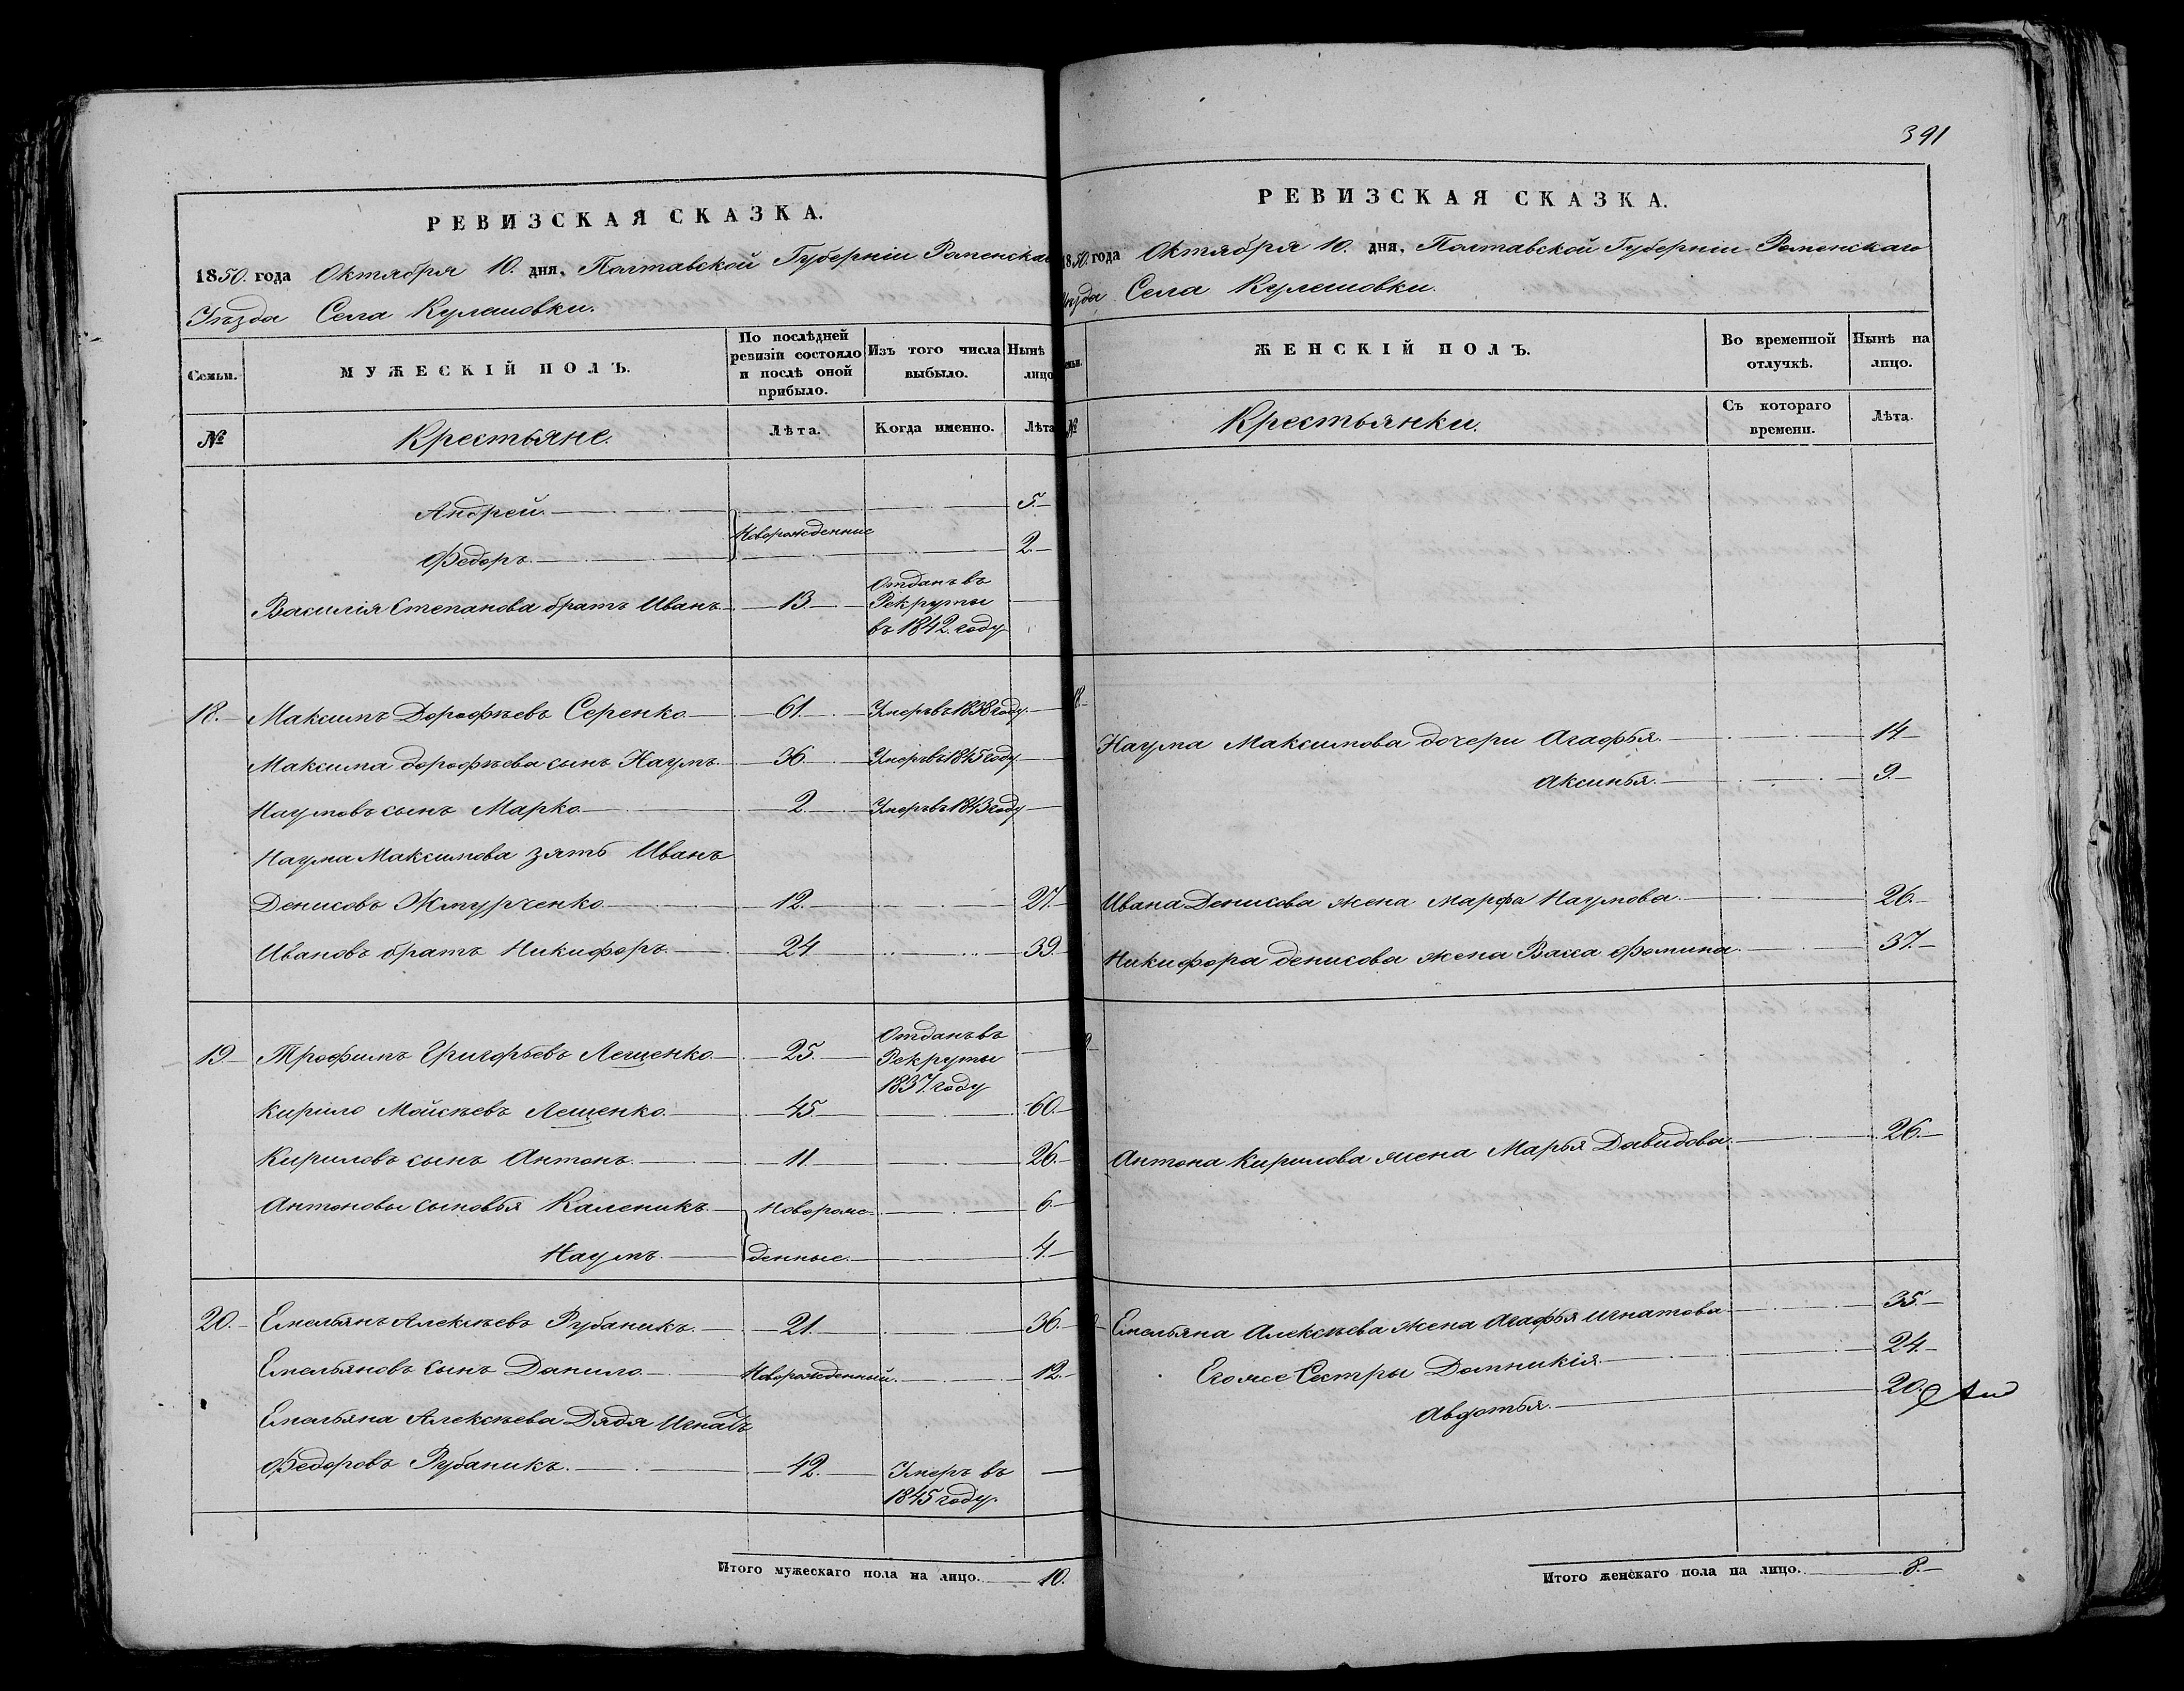 РЕВИЗСКАЯ СКАЗКА.
1850. года Октября 10. дня, Полтавской Губерніи Роменскаго
Уѣзда Села Кулешовки.
Семьи.
МУЖЕСКІЙ ПОЛЪ.
По послѣдней ревизіи состояло и послѣ оной прибыло.
Изъ того числа выбыло.
Нынѣ лицо
№
Крестьяне.
Лѣта.
Когда именно.
Лѣта
Андрей. 5.
Новорожденные
Федоръ. 2.
Василія Степанова братъ Иванъ 13. Отданъ въ Рекруты въ 1842. году
18. Максимъ Дорофѣевъ Серенко. 61. Умеръ въ 1838 году.
Максима Дорофѣева сынъ Наумъ. 36. Умеръ въ 1845 году
Наумовъ сынъ Марко 2. Умеръ въ 1843 году
Наума Максимова зять Иванъ
Денисовъ Жмурченко 12. 27.
Ивановъ братъ Никифоръ. 24 39.
19 Трофимъ Григорьевъ Лещенко 25. Отданъ въ Рекруты 1837. году
Кирило Мойсѣевъ Лещенко. 45 60.
Кириловъ сынъ Антонъ. 11. 26.
Антоновы сыновья Каленикъ. Новорож- 6.
Наумъ. денные. 4.
20. Емельянъ Алексѣевъ Рубаникъ. 21. 36.
Емельяновъ сынъ Данило. Новорожденный. 12.
Емельяна Алексѣева Дядя Игнатъ
Федоровъ Рубаникъ. 42. Умеръ въ 1845 году.
Итого мужескаго пола на лицо. 10.
391
РЕВИЗСКАЯ СКАЗКА.
1850. года Октября 10. дня, Полтавской Губерніи Роменскаго
Уѣзда Села Кулешовки.
ЖЕНСКІЙ ПОЛЪ.
Во временной отлучкѣ.
Нынѣ на лицо.
№
Крестьянки.
Съ котораго времени.
Лѣта.
Наума Максимова дочери Агафья. 14
Аксинья. 9.
Ивана Денисова жена Марфа Наумова. 26.
Никифора Денисова жена Васса Фомина. 37.
Антона Кирилова жена Марья Давидова. 26.
Емельяна Алексѣева жена Агафья Игнатова 35.
Егоже Сестры Домникія. 24.
Авдотья. 20.
Итого женскаго пола на лицо. 8.